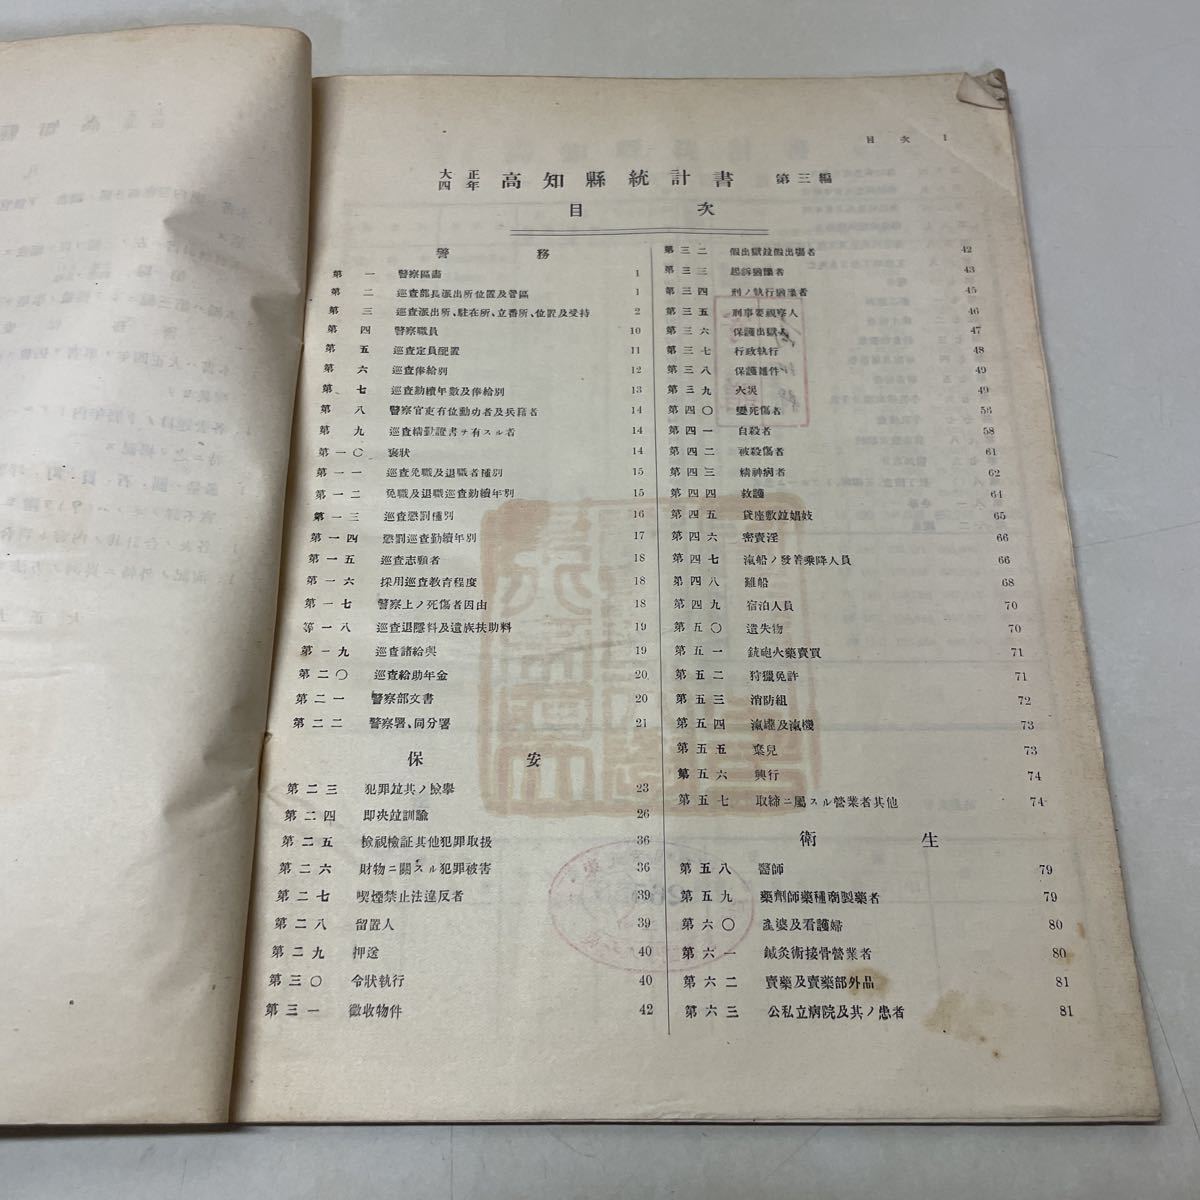 目次 1
大正四年 高知縣統計書 第三編
目次
警務
第一 警察區畫 1
第二 巡査部長派出所位置及管區 1
第三 巡査派出所、駐在所、立番所、位置及受持 2
第四 警察職員 10
第五 巡査定員配置 11
第六 巡査俸給別 12
第七 巡査勤續年數及俸給別 13
第八 警察官吏有位勳功者及兵籍者 14
第九 巡査精勤證書ヲ有スル者 14
第一〇 褒狀 14
第一一 巡査免職及退職者種別 15
第一二 免職及退職巡査勤續年別 15
第一三 巡査懲罰種別 16
第一四 懲罰巡査勤續年別 17
第一五 巡査志願者 18
第一六 採用巡査教育程度 18
第一七 警察上ノ死傷者因由 18
等一八 巡査退隱料及遺族扶助料 19
第一九 巡査諸給與 19
第二〇 巡査給助年金 20
第二一 警察部文書 20
第二二 警察署、同分署 21
保安
第二三 犯罪竝其ノ檢擧 23
第二四 即決竝訓諭 26
第二五 檢視檢証其他犯罪取扱 36
第二六 財物ニ關スル犯罪被害 36
第二七 喫煙禁止法違反者 39
第二八 留置人 39
第二九 押送 40
第三〇 令狀執行 40
第三一 徵收物件 42
第三二 假出獄竝假出場者 42
第三三 起訴猶豫者 43
第三四 刑ノ執行猶豫者 45
第三五 刑事要視察人 46
第三六 保護出獄者 47
第三七 行政執行 48
第三八 保護雜件 49
第三九 火災 49
第四〇 變死傷者 56
第四一 自殺者 58
第四二 被殺傷者 61
第四三 精神病者 62
第四四 救護 64
第四五 貸座敷竝娼妓 65
第四六 密賣淫 66
第四七 滊船ノ發着乘降人員 66
第四八 難船 68
第四九 宿泊人員 70
第五〇 遺失物 70
第五一 銃砲火藥賣買 71
第五二 狩獵免許 71
第五三 消防組 72
第五四 滊罐及滊機 73
第五五 棄兒 73
第五六 興行 74
第五七 取締ニ屬スル營業者其他 74
衛生
第五八 醫師 79
第五九 藥劑師藥種商製藥者 79
第六〇 產婆及看護婦 80
第六一 鍼灸術接骨營業者 80
第六二 賣藥及賣藥部外品 81
第六三 公私立病院及其ノ患者 81